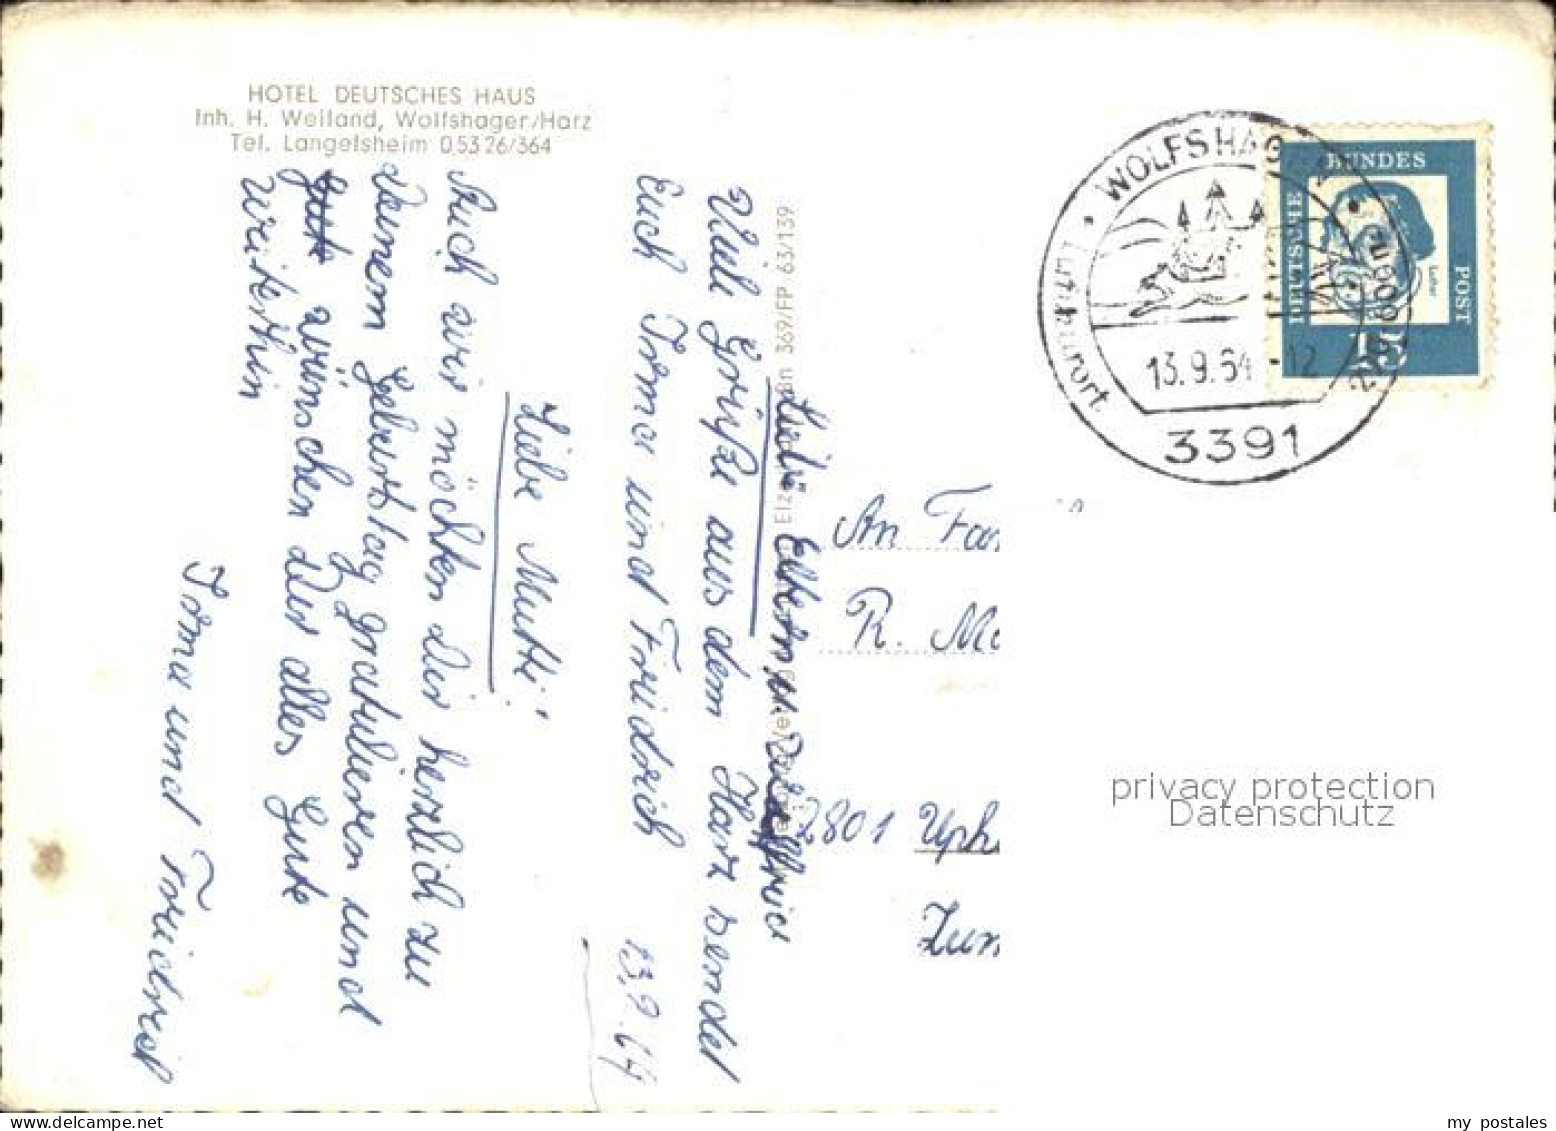 HOTEL DEUTSCHES HAUS
Inh. H. Weiland, Wolfshagen/Harz
Tel. Langelsheim 0 53 26/364
Liebe Eltern u.
Viele Grüße aus dem Harz sendet
Euch Irma und Friedrich
13.9.64
Liebe Mutti!
Auch wir möchten Dir herzlich zu
Deinem Geburtstag gratulieren und
wünschen Dir alles Gute
weiterhin
Irma und Friedrich
369/FP 63/139
WOLFSHAG
Luftkurort
13.9.64-12
3391
DEUTSCHE
BUNDES
POST
Luther
15
An Fam
R. Me
2801 Uph
privacy protection
Datenschutz
my postales